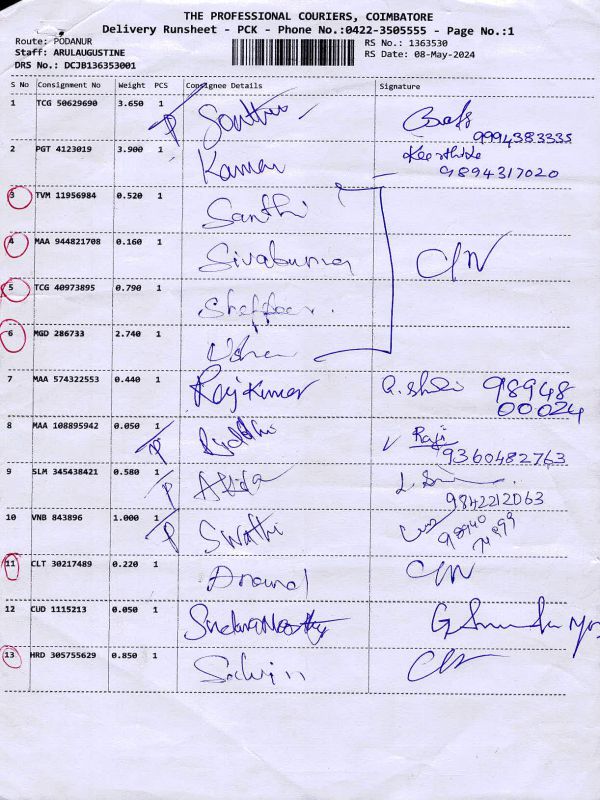 THE PROFESSIONAL COURIERS, COIMBATORE
Delivery Runsheet - PCK - Phone No.:0422-3505555 - Page No.:1
Route: PODANUR
RS No.: 1363530
Staff: ARULAUGUSTINE
RS Date: 08-May-2024
DRS No.: DCJB136353001
S No Consignment No Weight PCS Consignee Details Signature
1 TCG 50629690 3.650 1 P
9994383335
2 PGT 4123019 3.900 1 Kaman
9894317020
3 TVM 11956984 0.520 1 Santhi
4 MAA 944821708 0.160 1
5 TCG 40973895 0.790 1
6 MGD 286733 2.740 1
7 MAA 574322553 0.440 1 Rajkumar 98948
00024
8 MAA 108895942 0.050 1 P Raji
9360482763
9 SLM 345438421 0.580 1 P
9842212063
10 VNB 843896 1.000 1 P Swathi 98940
11 CLT 30217489 0.220 1 Anand
12 CUD 1115213 0.050 1
13 HRD 305755629 0.850 1 Salvin